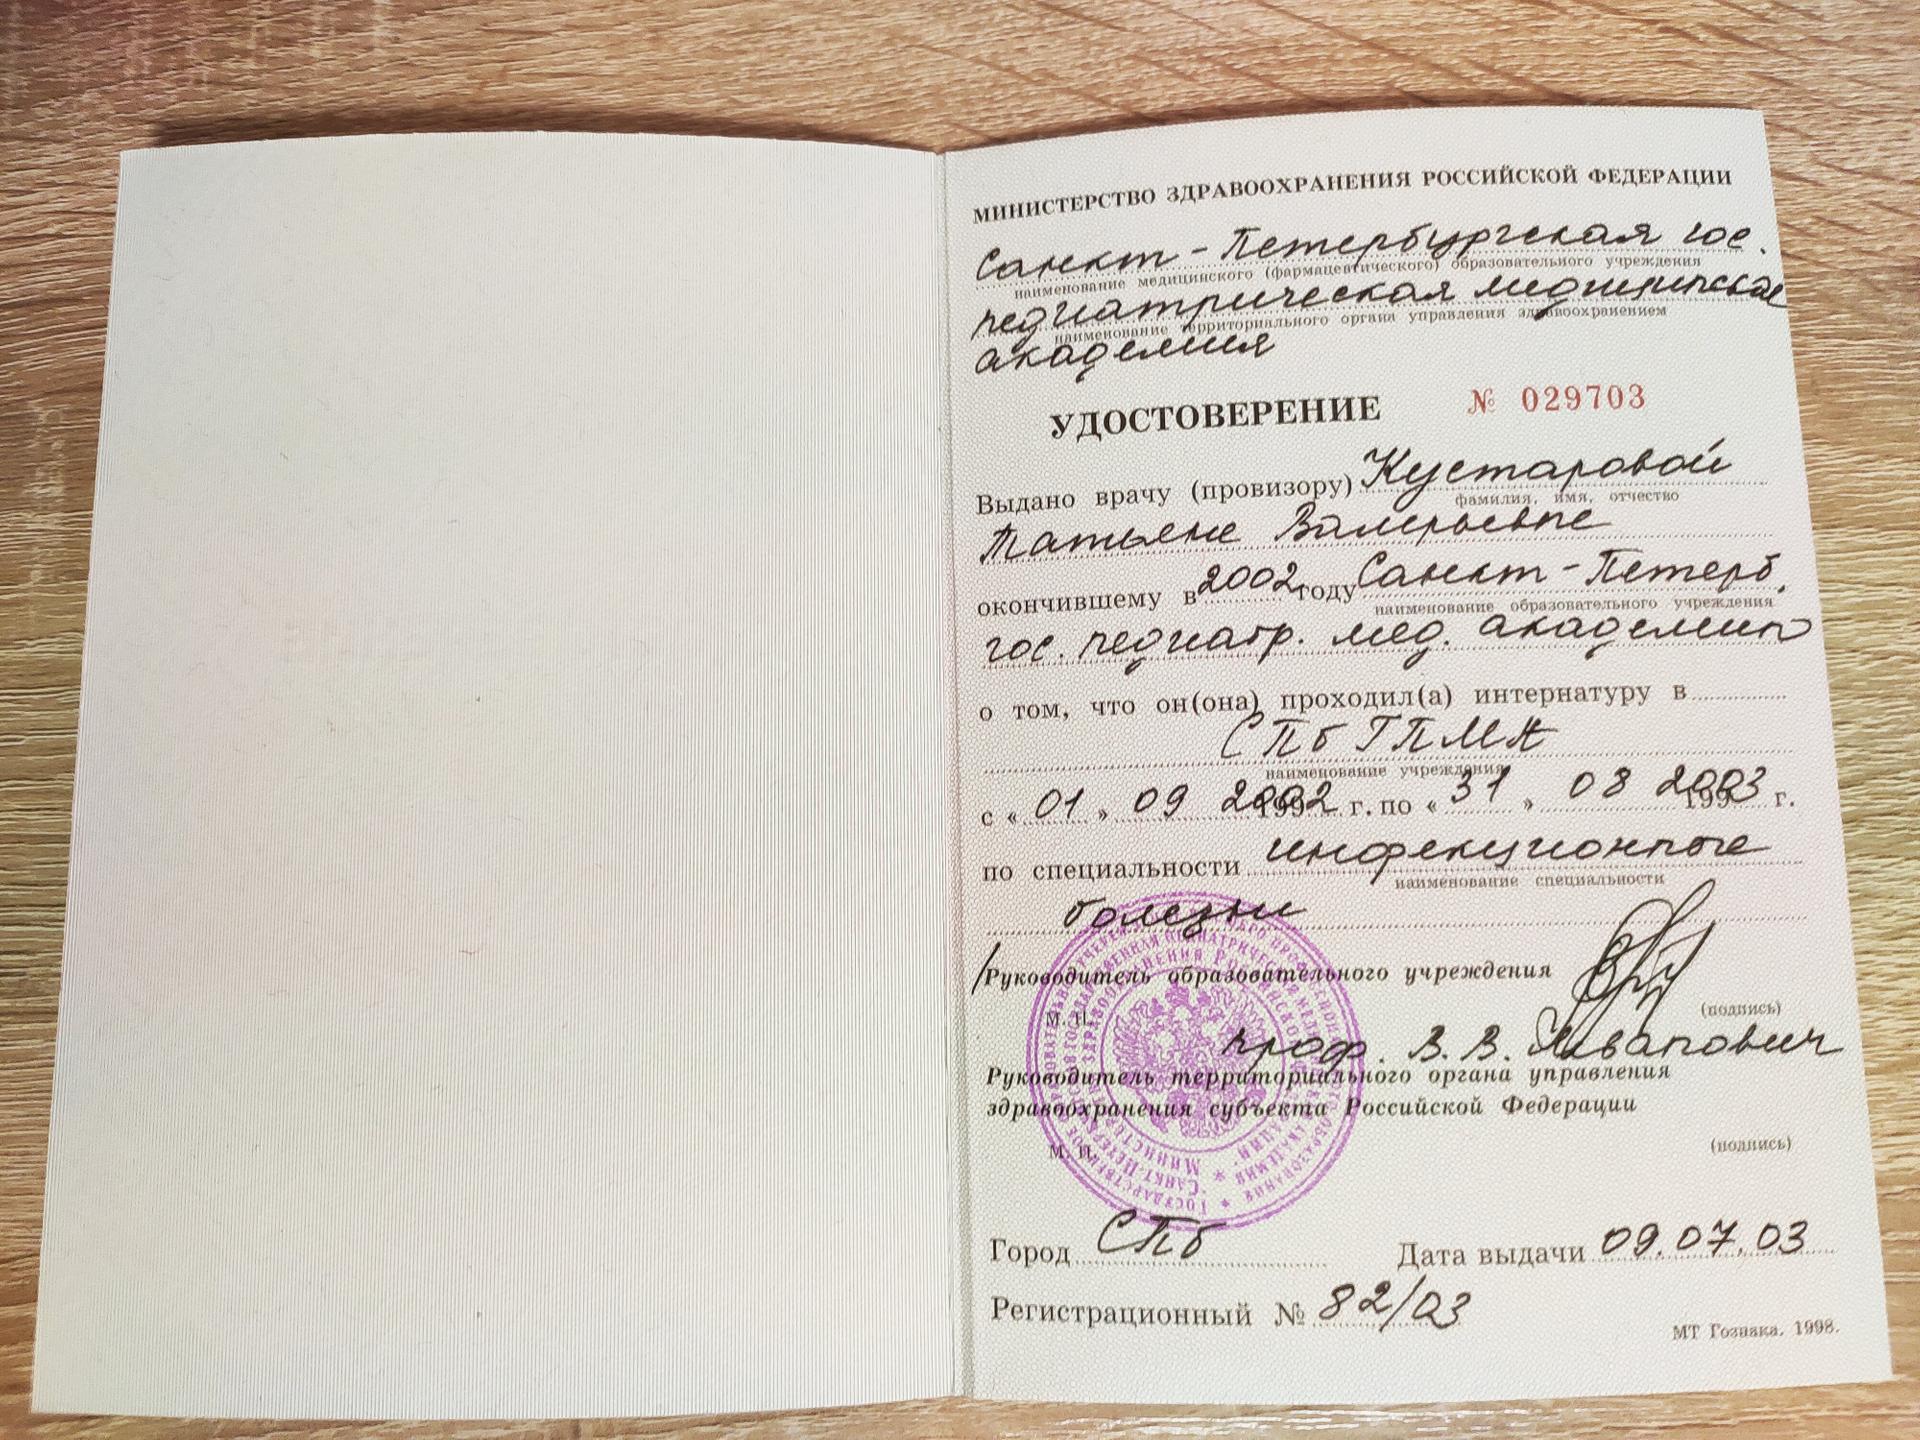 МИНИСТЕРСТВО ЗДРАВООХРАНЕНИЯ РОССИЙСКОЙ ФЕДЕРАЦИИ
Санкт-Петербургская гос.
наименование медицинского (фармацевтического) образовательного учреждения
педиатрическая медицинская
наименование территориального органа управления здравоохранением
академия
УДОСТОВЕРЕНИЕ № 029703
Выдано врачу (провизору) Кустаровой
фамилия, имя, отчество
Татьяне Валерьевне
окончившему в 2002 году Санкт-Петерб.
наименование образовательного учреждения
гос. педиатр. мед. академию
о том, что он(она) проходил(а) интернатуру в
СПбГПМА
наименование учреждения
с « 01 » 09 2002 г. по « 31 » 08 2003 г.
по специальности инфекционные
наименование специальности
болезни
/Руководитель образовательного учреждения
(подпись)
М. П.
проф. В. В. Леванович
Руководитель территориального органа управления
здравоохранения субъекта Российской Федерации
(подпись)
М. П.
Город СПб Дата выдачи 09.07.03
Регистрационный № 82/03
МТ Гознака. 1998.